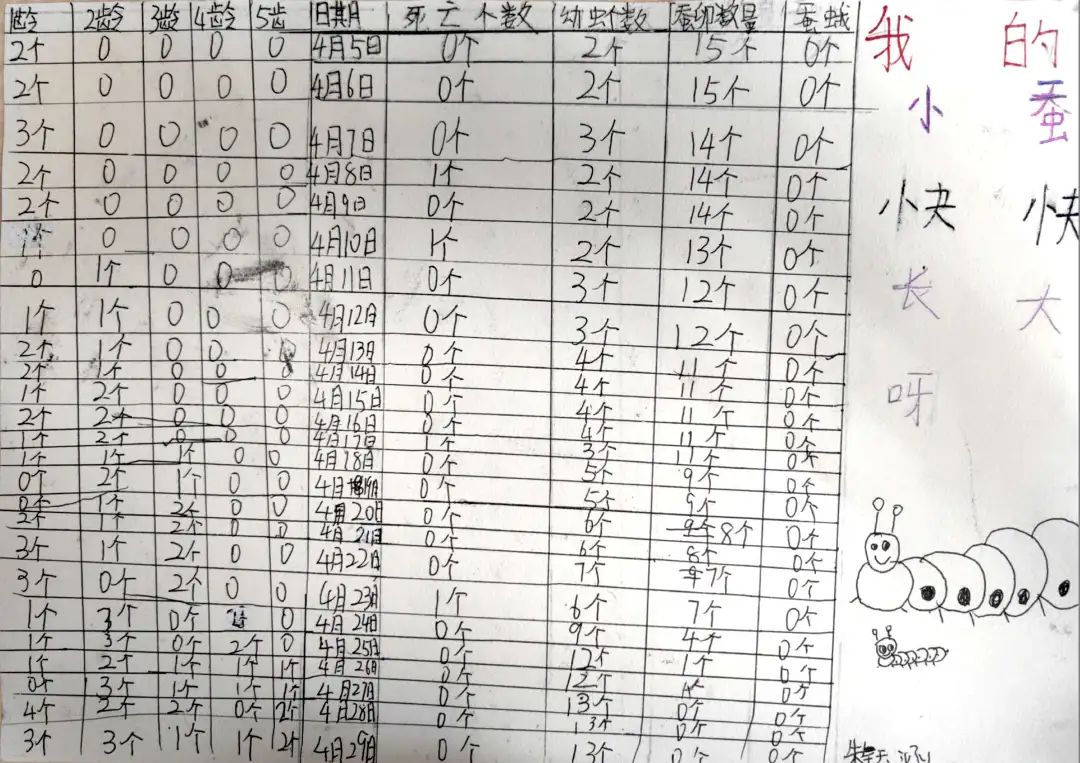 龄 2龄 3龄 4龄 5齿 日期月 死亡个数 幼虫个数 蚕卵数量 蚕蛾
2个 0 0 0 0 4月5日 0个 2个 15个 0个
2个 0 0 0 0 4月6日 0个 2个 15个 0个
3个 0 0 0 0 4月7日 0个 3个 14个 0个
2个 0 0 0 0 4月8日 1个 2个 14个 0个
2个 0 0 0 0 4月9日 0个 2个 14个 0个
1个 0 0 0 0 4月10日 1个 2个 13个 0个
0 1个 0 0 0 4月11日 0个 3个 12个 0个
1个 1个 0 0 0 4月12日 0个 3个 12个 0个
2个 1个 0 0 0 4月13日 0个 4个 11个 0个
2个 1个 0 0 0 4月14日 0个 4个 11个 0个
1个 2个 0 0 0 4月15日 0个 4个 11个 0个
2个 2个 0 0 0 4月16日 0个 4个 11个 0个
1个 2个 0 0 0 4月17日 1个 3个 11个 0个
1个 1个 1个 0 0 4月18日 0个 5个 9个 0个
0个 2个 1个 0 0 4月19日 0个 5个 9个 0个
0个 1个 2个 0 0 4月20日 0个 6个 8个 0个
2个 1个 2个 0 0 4月21日 0个 6个 8个 0个
3个 1个 2个 0 0 4月22日 0个 7个 7个 0个
3个 0个 2个 0 0 4月23日 1个 6个 7个 0个
1个 3个 0个 0 4月24日 0个 9个 4个 0个
1个 3个 0个 2个 0 4月25日 0个 12个 1个 0个
1个 2个 1个 1个 1个 4月26日 0个 12个 1个 0个
0个 3个 1个 1个 1个 4月27日 0个 13个 0个 0个
4个 2个 2个 0个 2个 4月28日 0个 13个 0个 0个
3个 3个 1个 1个 2个 4月29日 0个 13个 0个 0个
我的
小蚕
小快小快
长大
呀